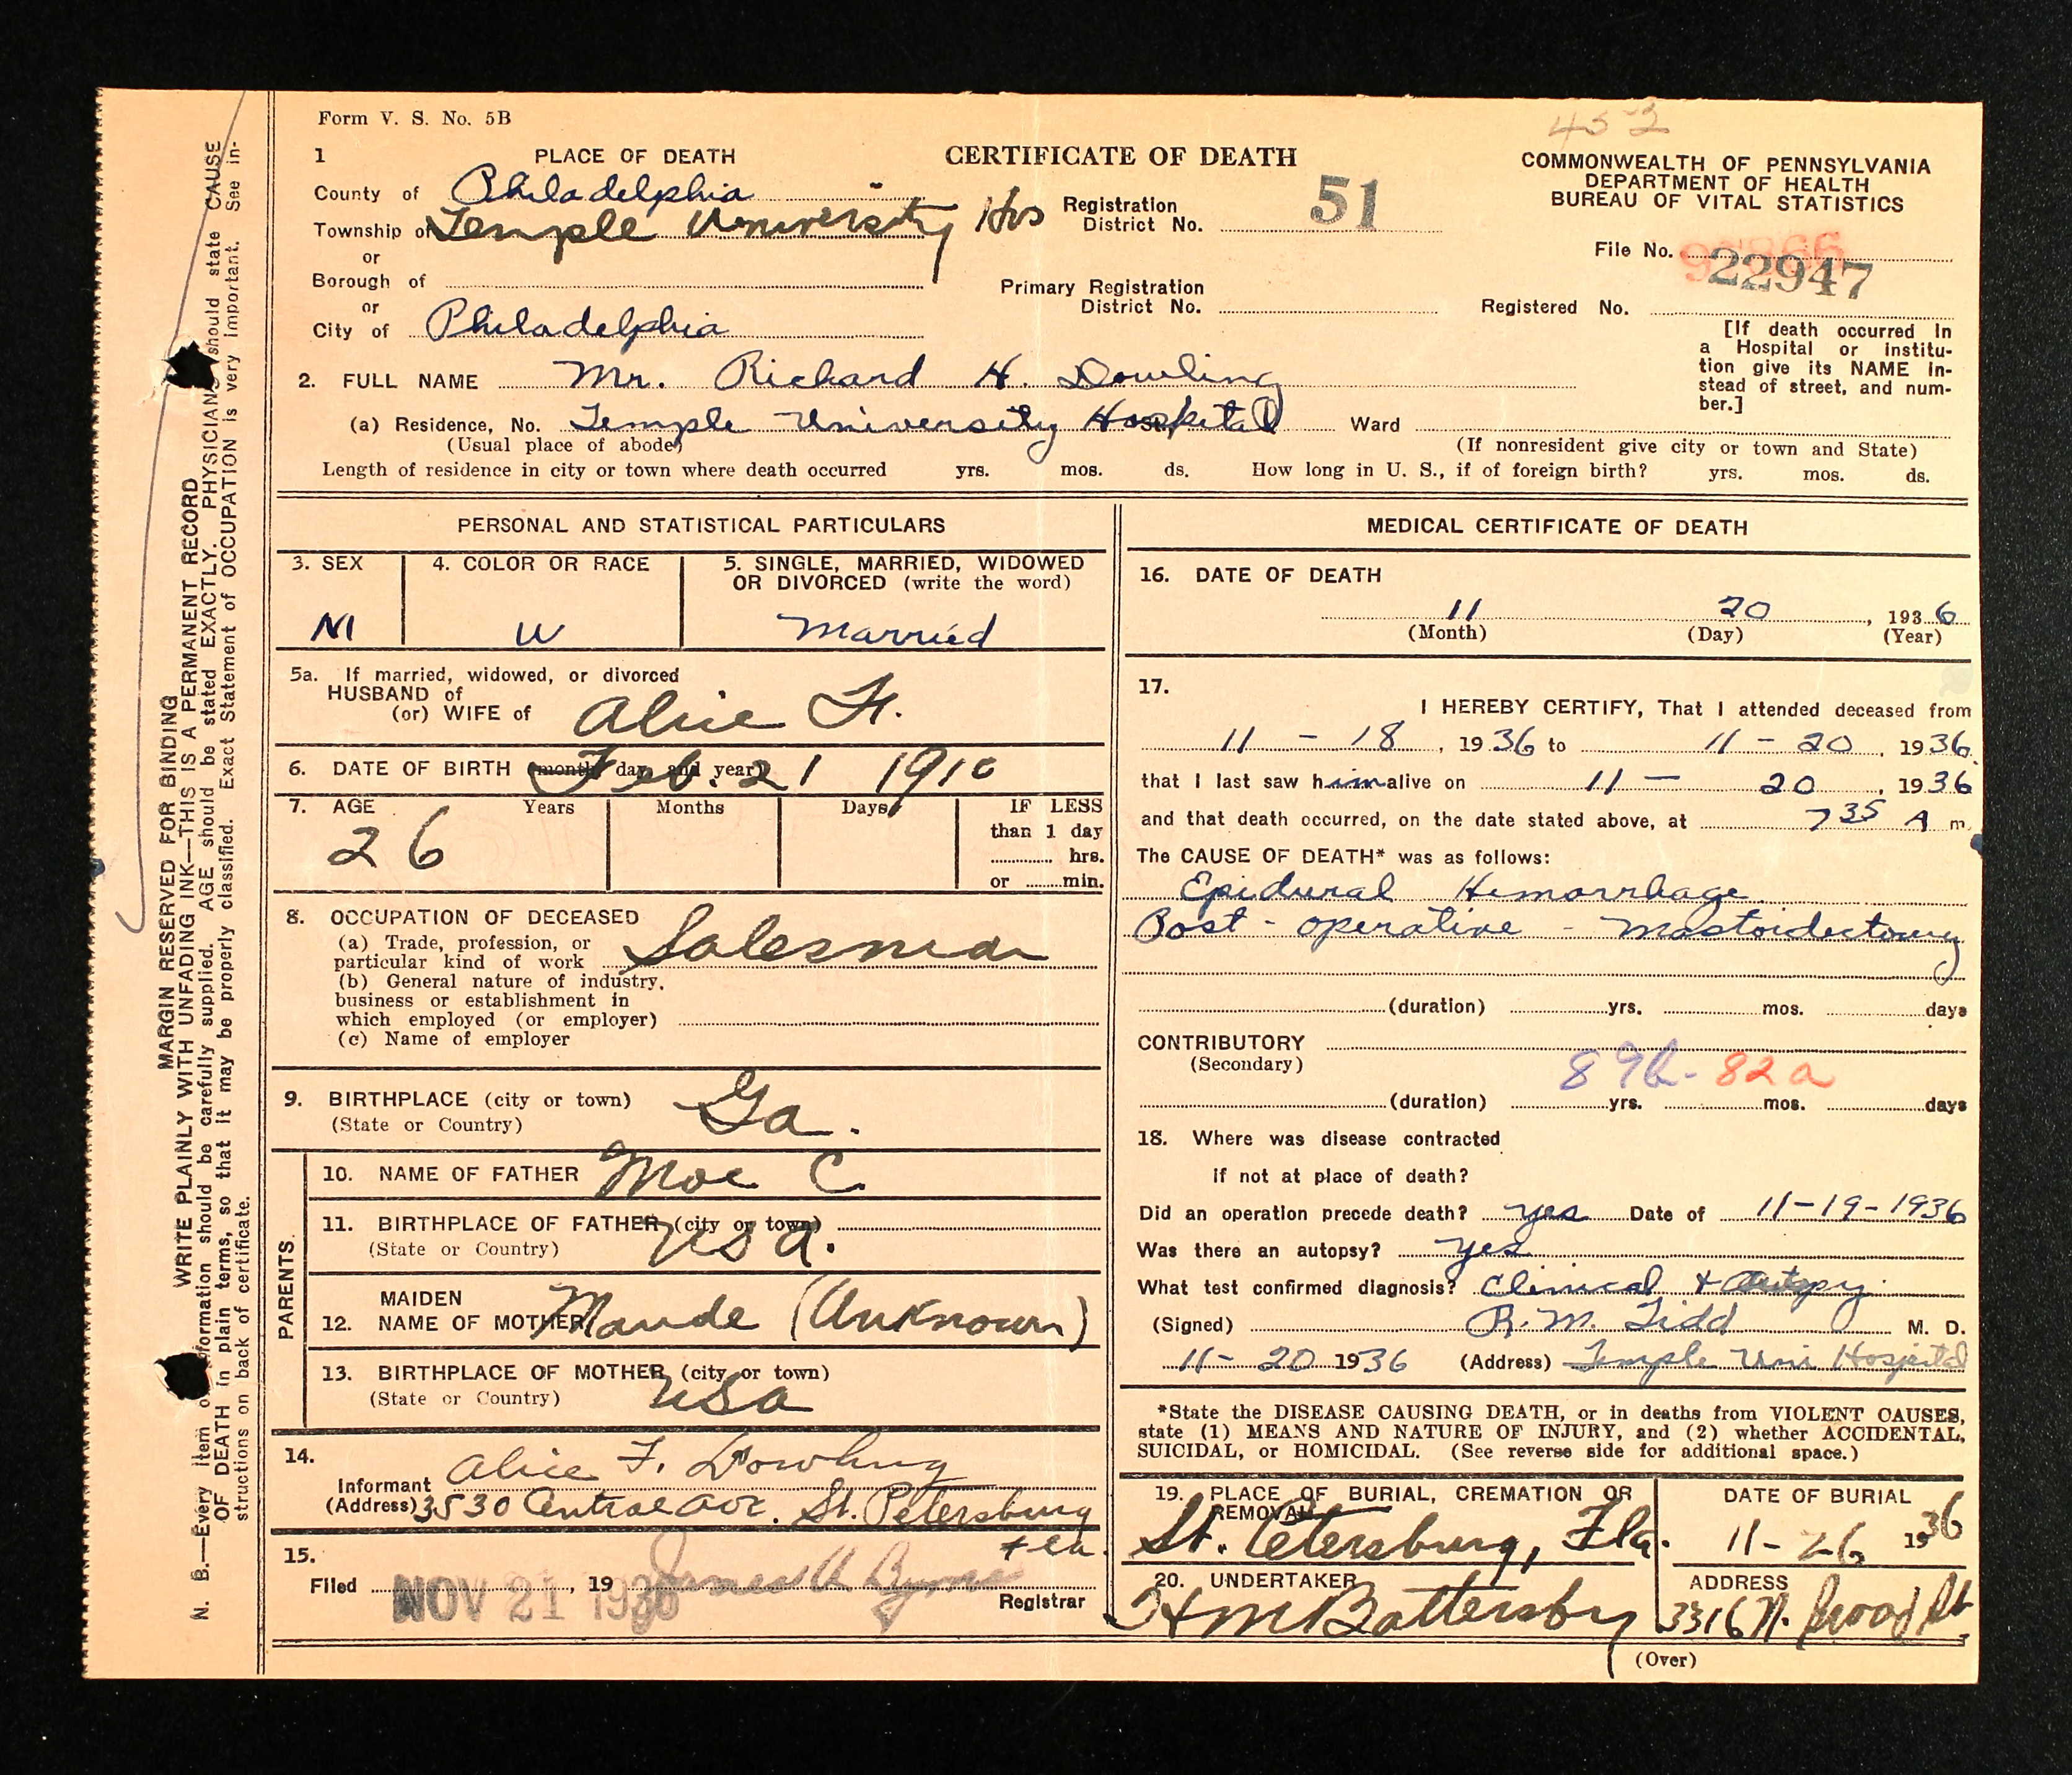 45-2
Form V. S. No. 5B
1 PLACE OF DEATH
CERTIFICATE OF DEATH
COMMONWEALTH OF PENNSYLVANIA
DEPARTMENT OF HEALTH
BUREAU OF VITAL STATISTICS
County of Philadelphia
Township of Temple University Hos
or
Borough of
or
City of Philadelphia
Registration
District No. 51
Primary Registration
District No.
File No.
22947
Registered No.
[If death occurred in
a Hospital or institu-
tion give its NAME in-
stead of street, and num-
ber.]
2. FULL NAME Mr. Richard H. Dowling
(a) Residence, No. Temple University Hospital Ward
(Usual place of abode) (If nonresident give city or town and State)
Length of residence in city or town where death occurred yrs. mos. ds. How long in U. S., if of foreign birth? yrs. mos. ds.
PERSONAL AND STATISTICAL PARTICULARS
3. SEX
M
4. COLOR OR RACE
W
5. SINGLE, MARRIED, WIDOWED
OR DIVORCED (write the word)
Married
5a. If married, widowed, or divorced
HUSBAND of
(or) WIFE of Alice F.
6. DATE OF BIRTH (month, day, and year) Feb. 21 1910
7. AGE Years Months Days
26
IF LESS
than 1 day
hrs.
or min.
8. OCCUPATION OF DECEASED
(a) Trade, profession, or
particular kind of work Salesman
(b) General nature of industry,
business or establishment in
which employed (or employer)
(c) Name of employer
9. BIRTHPLACE (city or town) Ga.
(State or Country)
PARENTS
10. NAME OF FATHER Moe C.
11. BIRTHPLACE OF FATHER (city or town)
(State or Country) USA.
MAIDEN
12. NAME OF MOTHER Maude (Unknown)
13. BIRTHPLACE OF MOTHER (city or town)
(State or Country) USA
14.
Informant Alice F. Dowling
(Address) 3530 Central Ave. St. Petersburg
Fla.
15.
Filed NOV 21 1936, 19 James A Byrne
Registrar
MEDICAL CERTIFICATE OF DEATH
16. DATE OF DEATH
11 20, 1936
(Month) (Day) (Year)
17.
I HEREBY CERTIFY, That I attended deceased from
11 - 18, 1936 to 11 - 20, 1936
that I last saw him alive on 11 - 20, 1936
and that death occurred, on the date stated above, at 7 35 A m.
The CAUSE OF DEATH* was as follows:
Epidural Hemorrhage
Post-operative - Mastoidectomy
(duration) yrs. mos. days
CONTRIBUTORY
(Secondary)
89b- 82a
(duration) yrs. mos. days
18. Where was disease contracted
if not at place of death?
Did an operation precede death? yes Date of 11-19-1936
Was there an autopsy? yes
What test confirmed diagnosis? Clinical + Autopsy
(Signed) R. M. Tidd M. D.
11- 20 1936 (Address) Temple Uni Hospital
*State the DISEASE CAUSING DEATH, or in deaths from VIOLENT CAUSES,
state (1) MEANS AND NATURE OF INJURY, and (2) whether ACCIDENTAL,
SUICIDAL, or HOMICIDAL. (See reverse side for additional space.)
19. PLACE OF BURIAL, CREMATION OR
REMOVAL
St. Petersburg, Fla.
DATE OF BURIAL
11- 26 1936
20. UNDERTAKER
H M Battersby
ADDRESS
3316 N. Broad St.
(Over)
MARGIN RESERVED FOR BINDING
WRITE PLAINLY WITH UNFADING INK—THIS IS A PERMANENT RECORD
N. B.—Every item of information should be carefully supplied. AGE should be stated EXACTLY. PHYSICIANS should state CAUSE
OF DEATH in plain terms, so that it may be properly classified. Exact Statement of OCCUPATION is very important. See in-
structions on back of certificate.